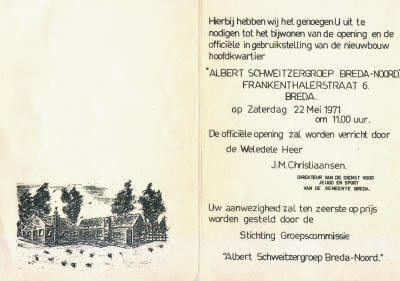 Hierbij hebben wij het genoegen U uit te
nodigen tot het bijwonen van de opening en de
officiële in gebruikstelling van de nieuwbouw
hoofdkwartier
"ALBERT SCHWEITZERGROEP BREDA-NOORD"
FRANKENTHALERSTRAAT 6.
BREDA.
op Zaterdag 22 Mei 1971
om 11.00 uur.
De officiële opening zal worden verricht door
de Weledele Heer
J.M. Christiaansen.
DIREKTEUR VAN DE DIENST VOOR
JEUGD EN SPORT
VAN DE GEMEENTE BREDA.
Uw aanwezigheid zal ten zeerste op prijs
worden gesteld door de
Stichting Groepscommissie
"Albert Schweitzergroep Breda-Noord."